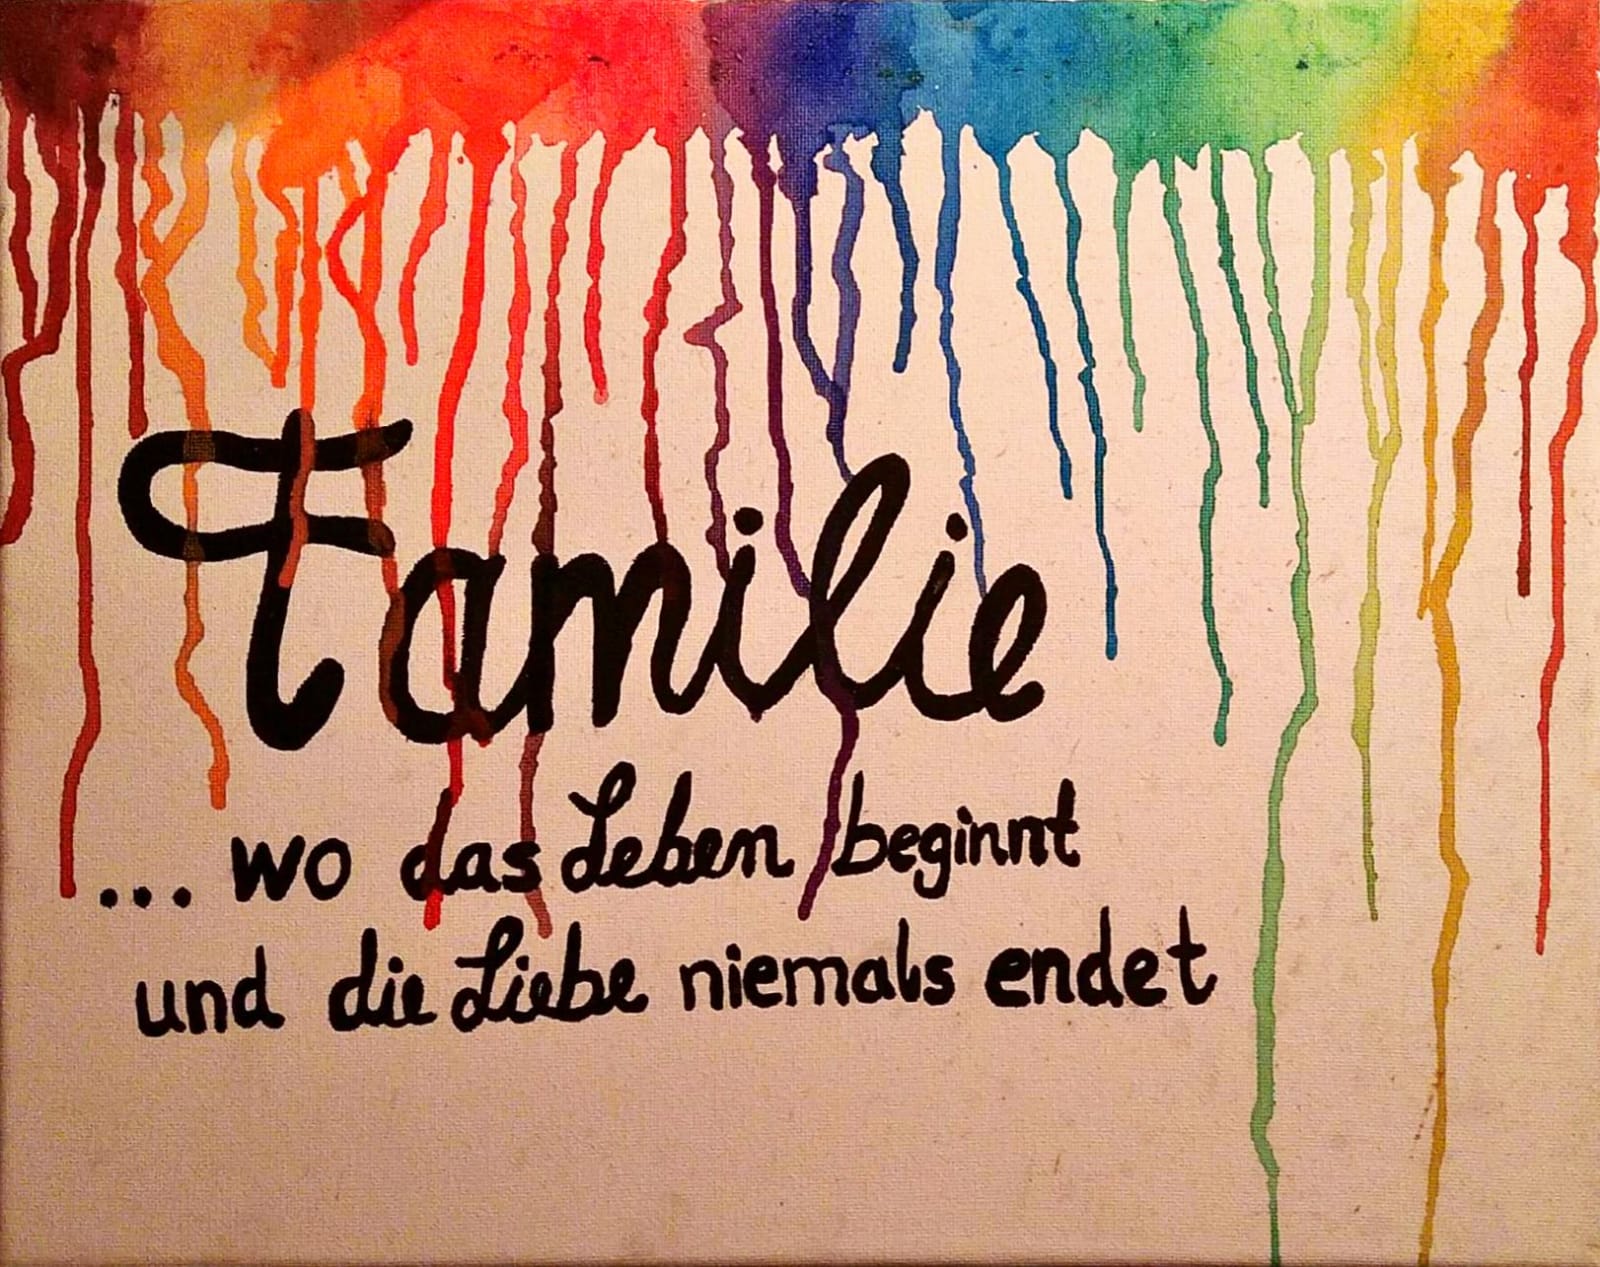 Familie
... wo das Leben beginnt
und die Liebe niemals endet